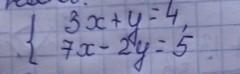 { 3x+y=4,
7x-2y=5